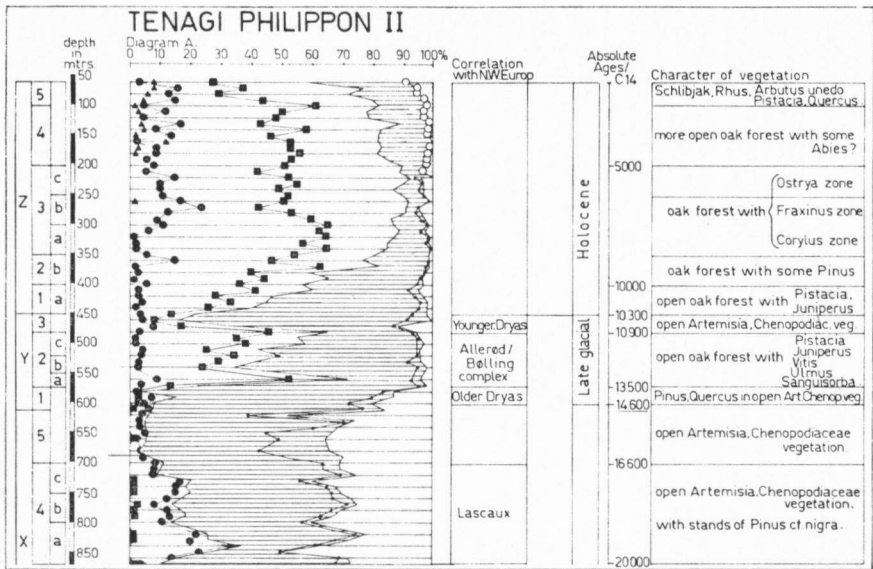 TENAGI PHILIPPON II
depth in mtrs.
Diagram A.
0 10 20 30 40 50 60 70 80 90 100%
Correlation with NW.Europ
Absolute Ages/ C14
Character of vegetation
50
100
150
200
250
300
350
400
450
500
550
600
650
700
750
800
850
Z
5
4
3
c
b
a
2
b
1
a
Y
3
2
c
b
a
1
X
5
4
c
b
a
Younger. Dryas
Allerød/
Bølling
complex
Older Dryas
Lascaux
Holocene
Late glacial
5000
10000
10300
10900
13500
14600
16600
20000
Schlibjak, Rhus, Arbutus unedo
Pistacia, Quercus
more open oak forest with some
Abies?
oak forest with
Ostrya zone
Fraxinus zone
Corylus zone
oak forest with some Pinus
open oak forest with Pistacia,
Juniperus
open Artemisia, Chenopodiac. veg.
open oak forest with
Pistacia
Juniperus
Vitis
Ulmus
Sanguisorba.
Pinus, Quercus in open Art. Chenop veg.
open Artemisia. Chenopodiaceae
vegetation.
open Artemisia. Chenopodiaceae
vegetation.
with stands of Pinus cf. nigra.